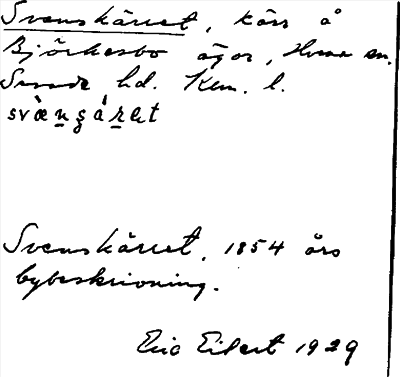 Svenskärret, kärr å
Björkesbo ägor, Huva sn.
Simde hd. Kem. l.
svæ̀ṉşá̱ṟet
Svenskärret, 1854 års
bybeskrivning.
Eric Eilert 1929